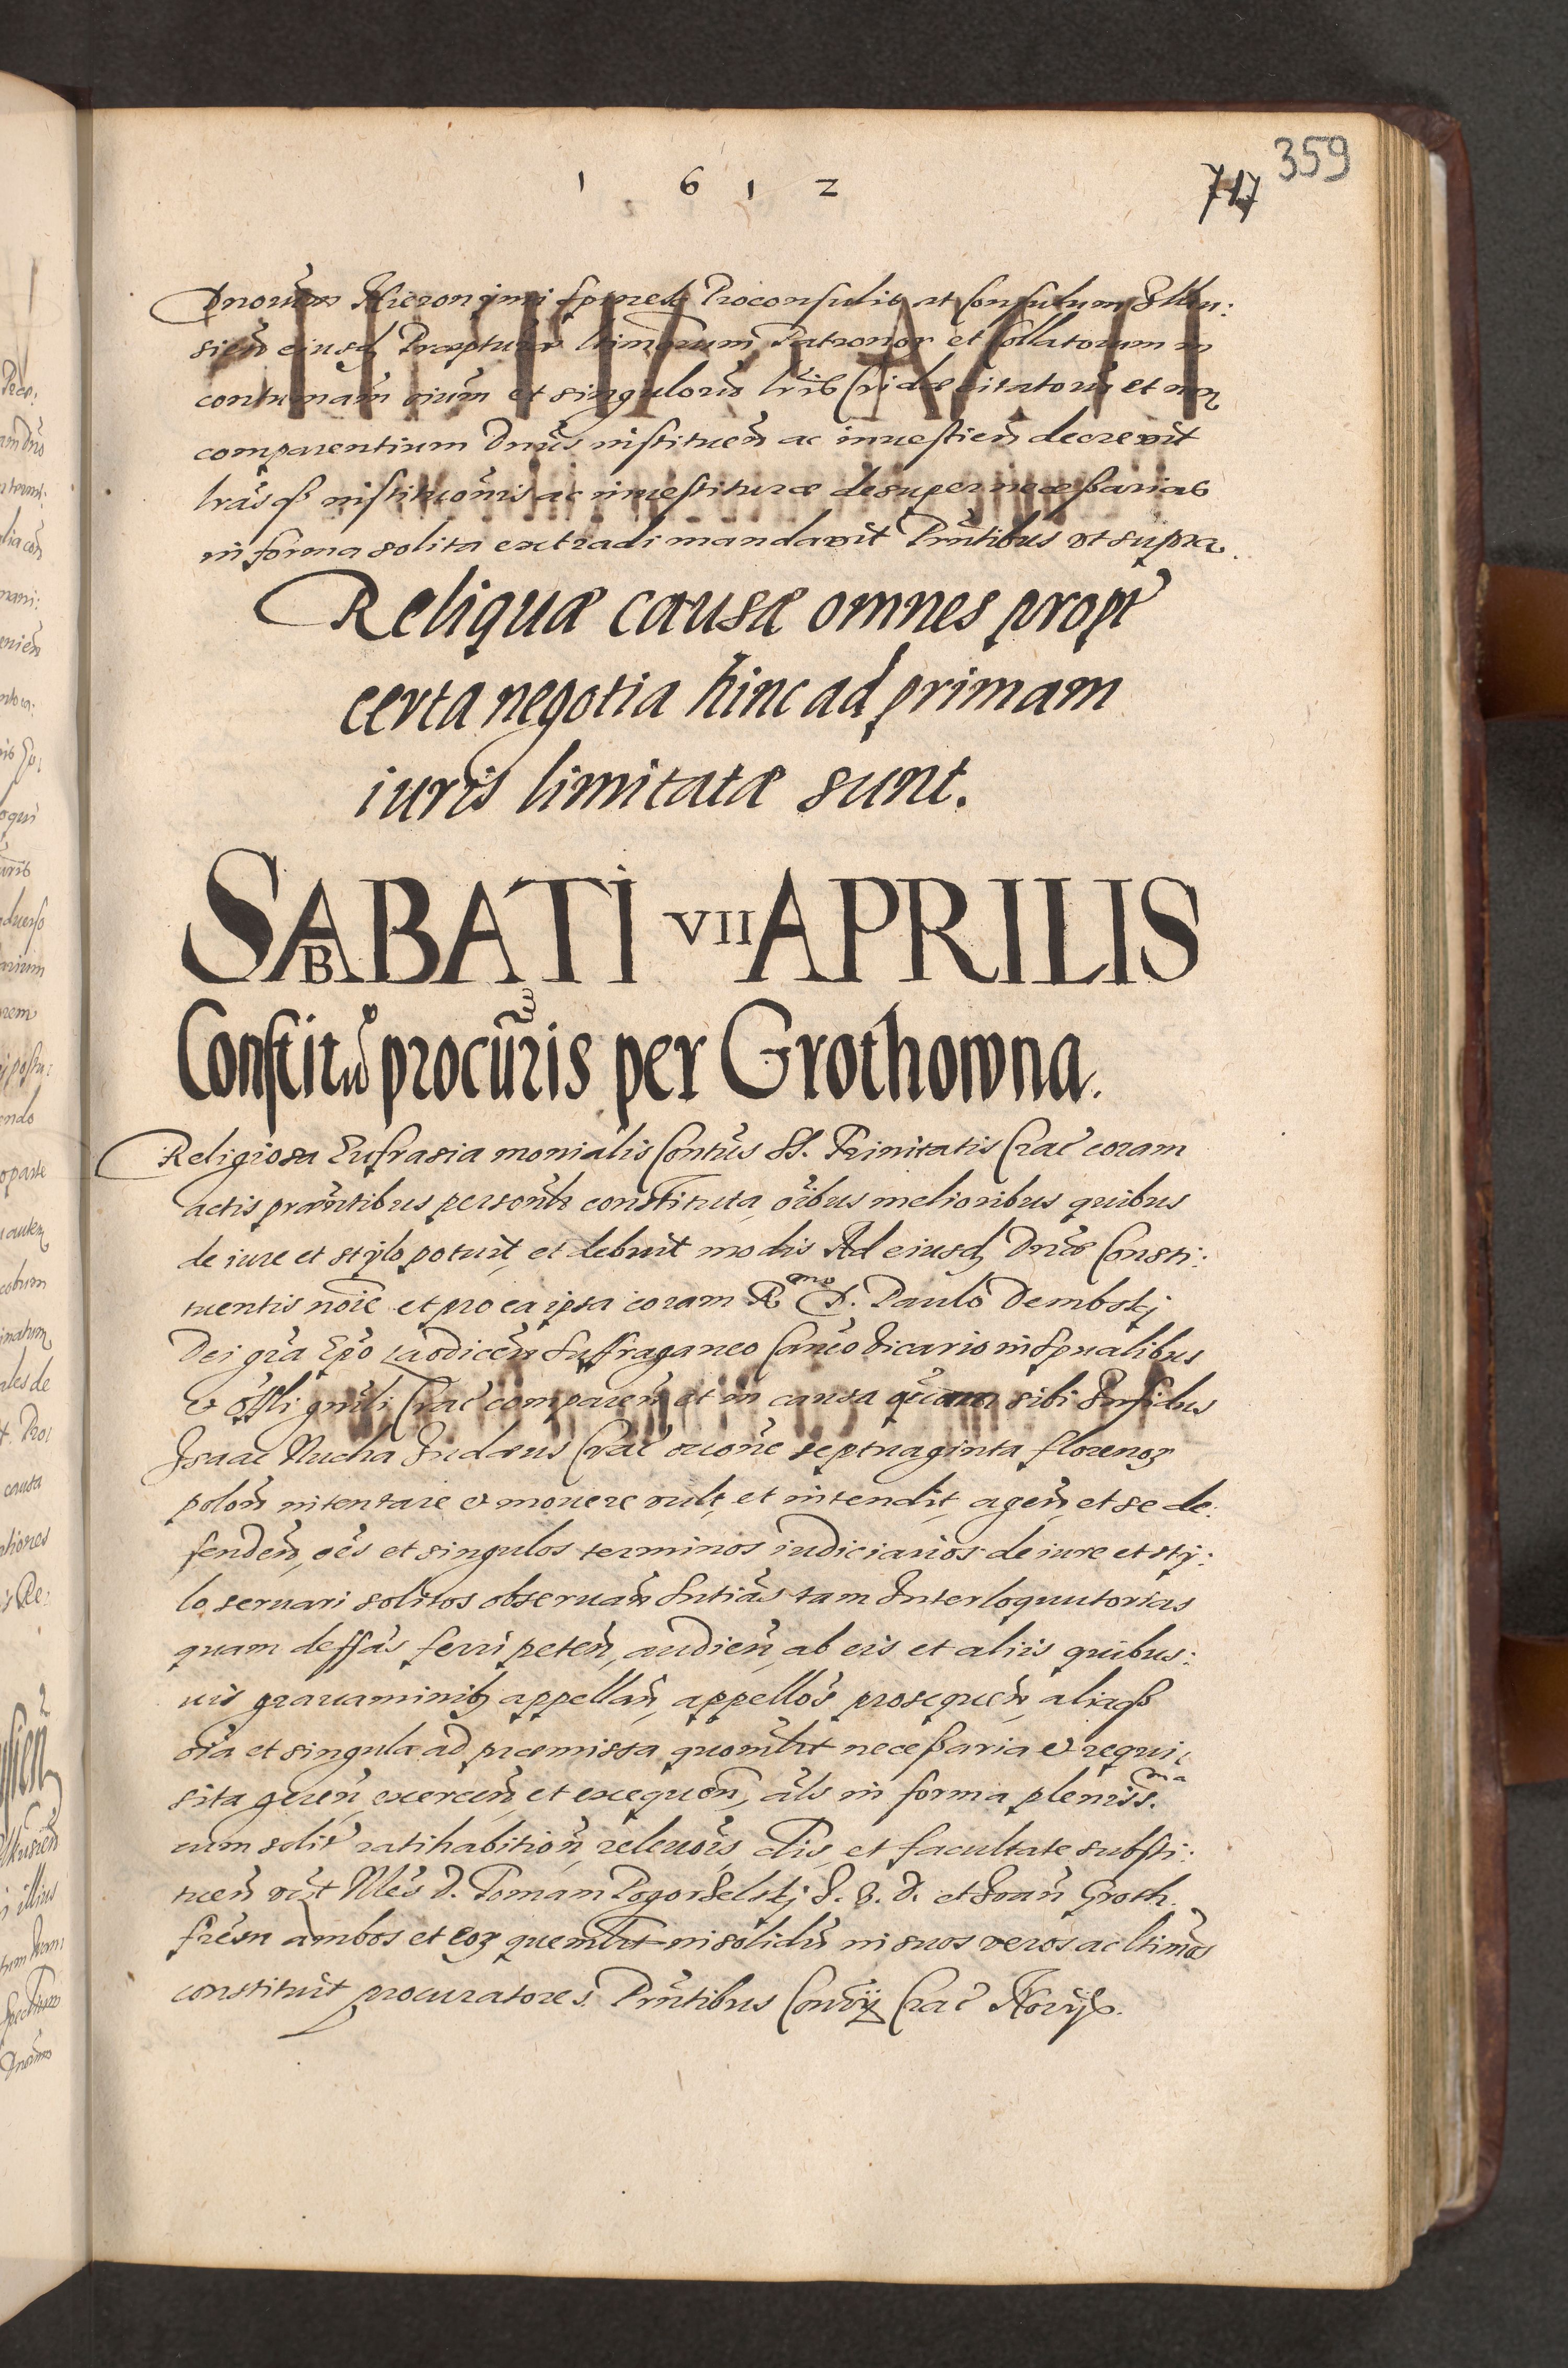 1612
359
717
Dnorum Hieronymi Proconsulis at Consulum Illku:
sien̄ eiusd̨ Praepturæ ltimorum Patronor̨ et Collatorum in
contumam̄ oium et singuloru͂ lris Cridae citatoru͂ et nō
comparentium Dnūs instituen̄ ac inuestien̄ decrevit
lrāsq̨ institūonis ac inuestituræ desuper necessarias
in forma solita extradi mandavit Prn̄tibus vt supra.
Reliquæ causæ omnes propt̕
certa negotia hinc ad primam
iuris limitatæ sunt.
SABBATI VII APRILIS
Constitu͂o procūris per Grothowna.
Religiosa Eufrasia monialis Contūs SS. Trinitatis Crac̄ coram
actis prae͂ntibus person͂lr constituta, o͂ibus melioribus quibus
de iure et stylo potuit, et debuit modis Ad eiusd̨ Dn͂æ Consti:
tuentis noi͂e et pro ea ipsa coram R͞mo D. Paulo Dembskj
Dei gr͂a Ep͂o Laodicen͂ Suffraganeo Canco Vicario in Sp͂ualibus
& Offli gn͂rli Crac̄ comparen͂ et in causa quam sibi Infidus
Isaac Nucha Iudæus Crac̄ rao͂ne septuaginta florenor̨
polon͂ intentare & mouere vult, et intendit, agen͂, et se de:
fenden͂, o͂es et singulos terminos iudiciarios de iure et sty:
lo seruari solitos obseruan͂ Sntia͂s tam Interloquutorias
quam deffa͂s ferri peten͂, audien͂, ab eis et aliis quibus:
uis grauaminib̨ appellan͂, appello͂s prosequen͂, aliaq̨
o͂ia et singula ad præmissa quomlt necessaria & requi:
sita geren͂, exercen͂, et exequen͂, a͂ls in forma pleniss.ma
cum solit̕ ratihabition͂, releuo͂is, Clis, et facultate substi:
tuen͂ D. Tomam Pogorselskj I. V. D. et Ioan͂ Groth
fre͂m ambos et eor̨ quemlt in solidu͂ in suos veros ac ltimos
constituit procuratores. Prn͂tibus Crac̄